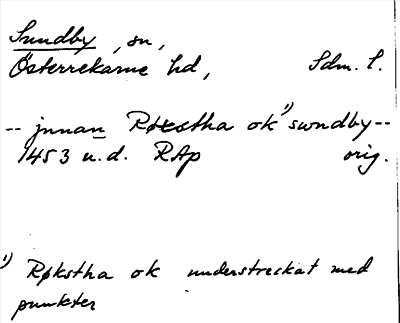 Sundby, sn,
Österrekarne hd, Sdm. l.
-- jnnan Røkstha ok ¹) swndby --
1453 u.d. RAp orig.
¹) Røkstha ok understreckat med
punkter